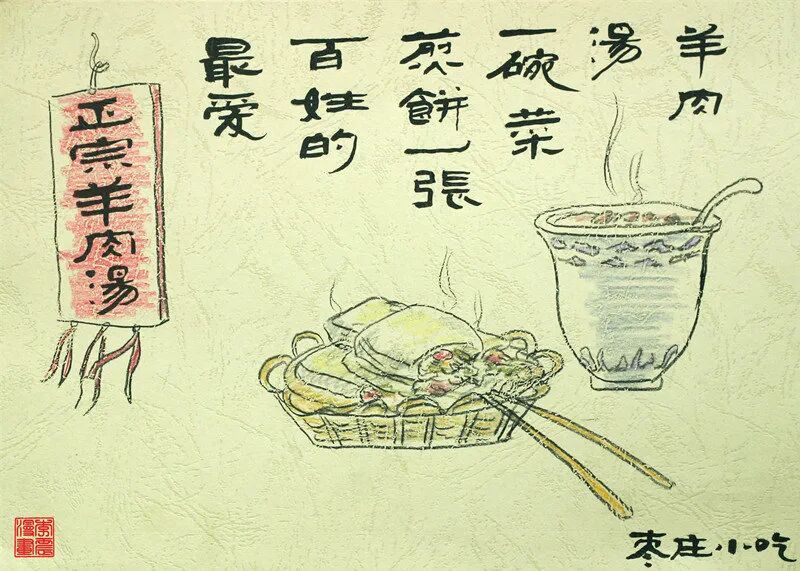 羊肉
湯
一碗菜
煎餅一張
百姓的
最爱
正宗羊肉湯
枣庄小吃
李震
漫畫